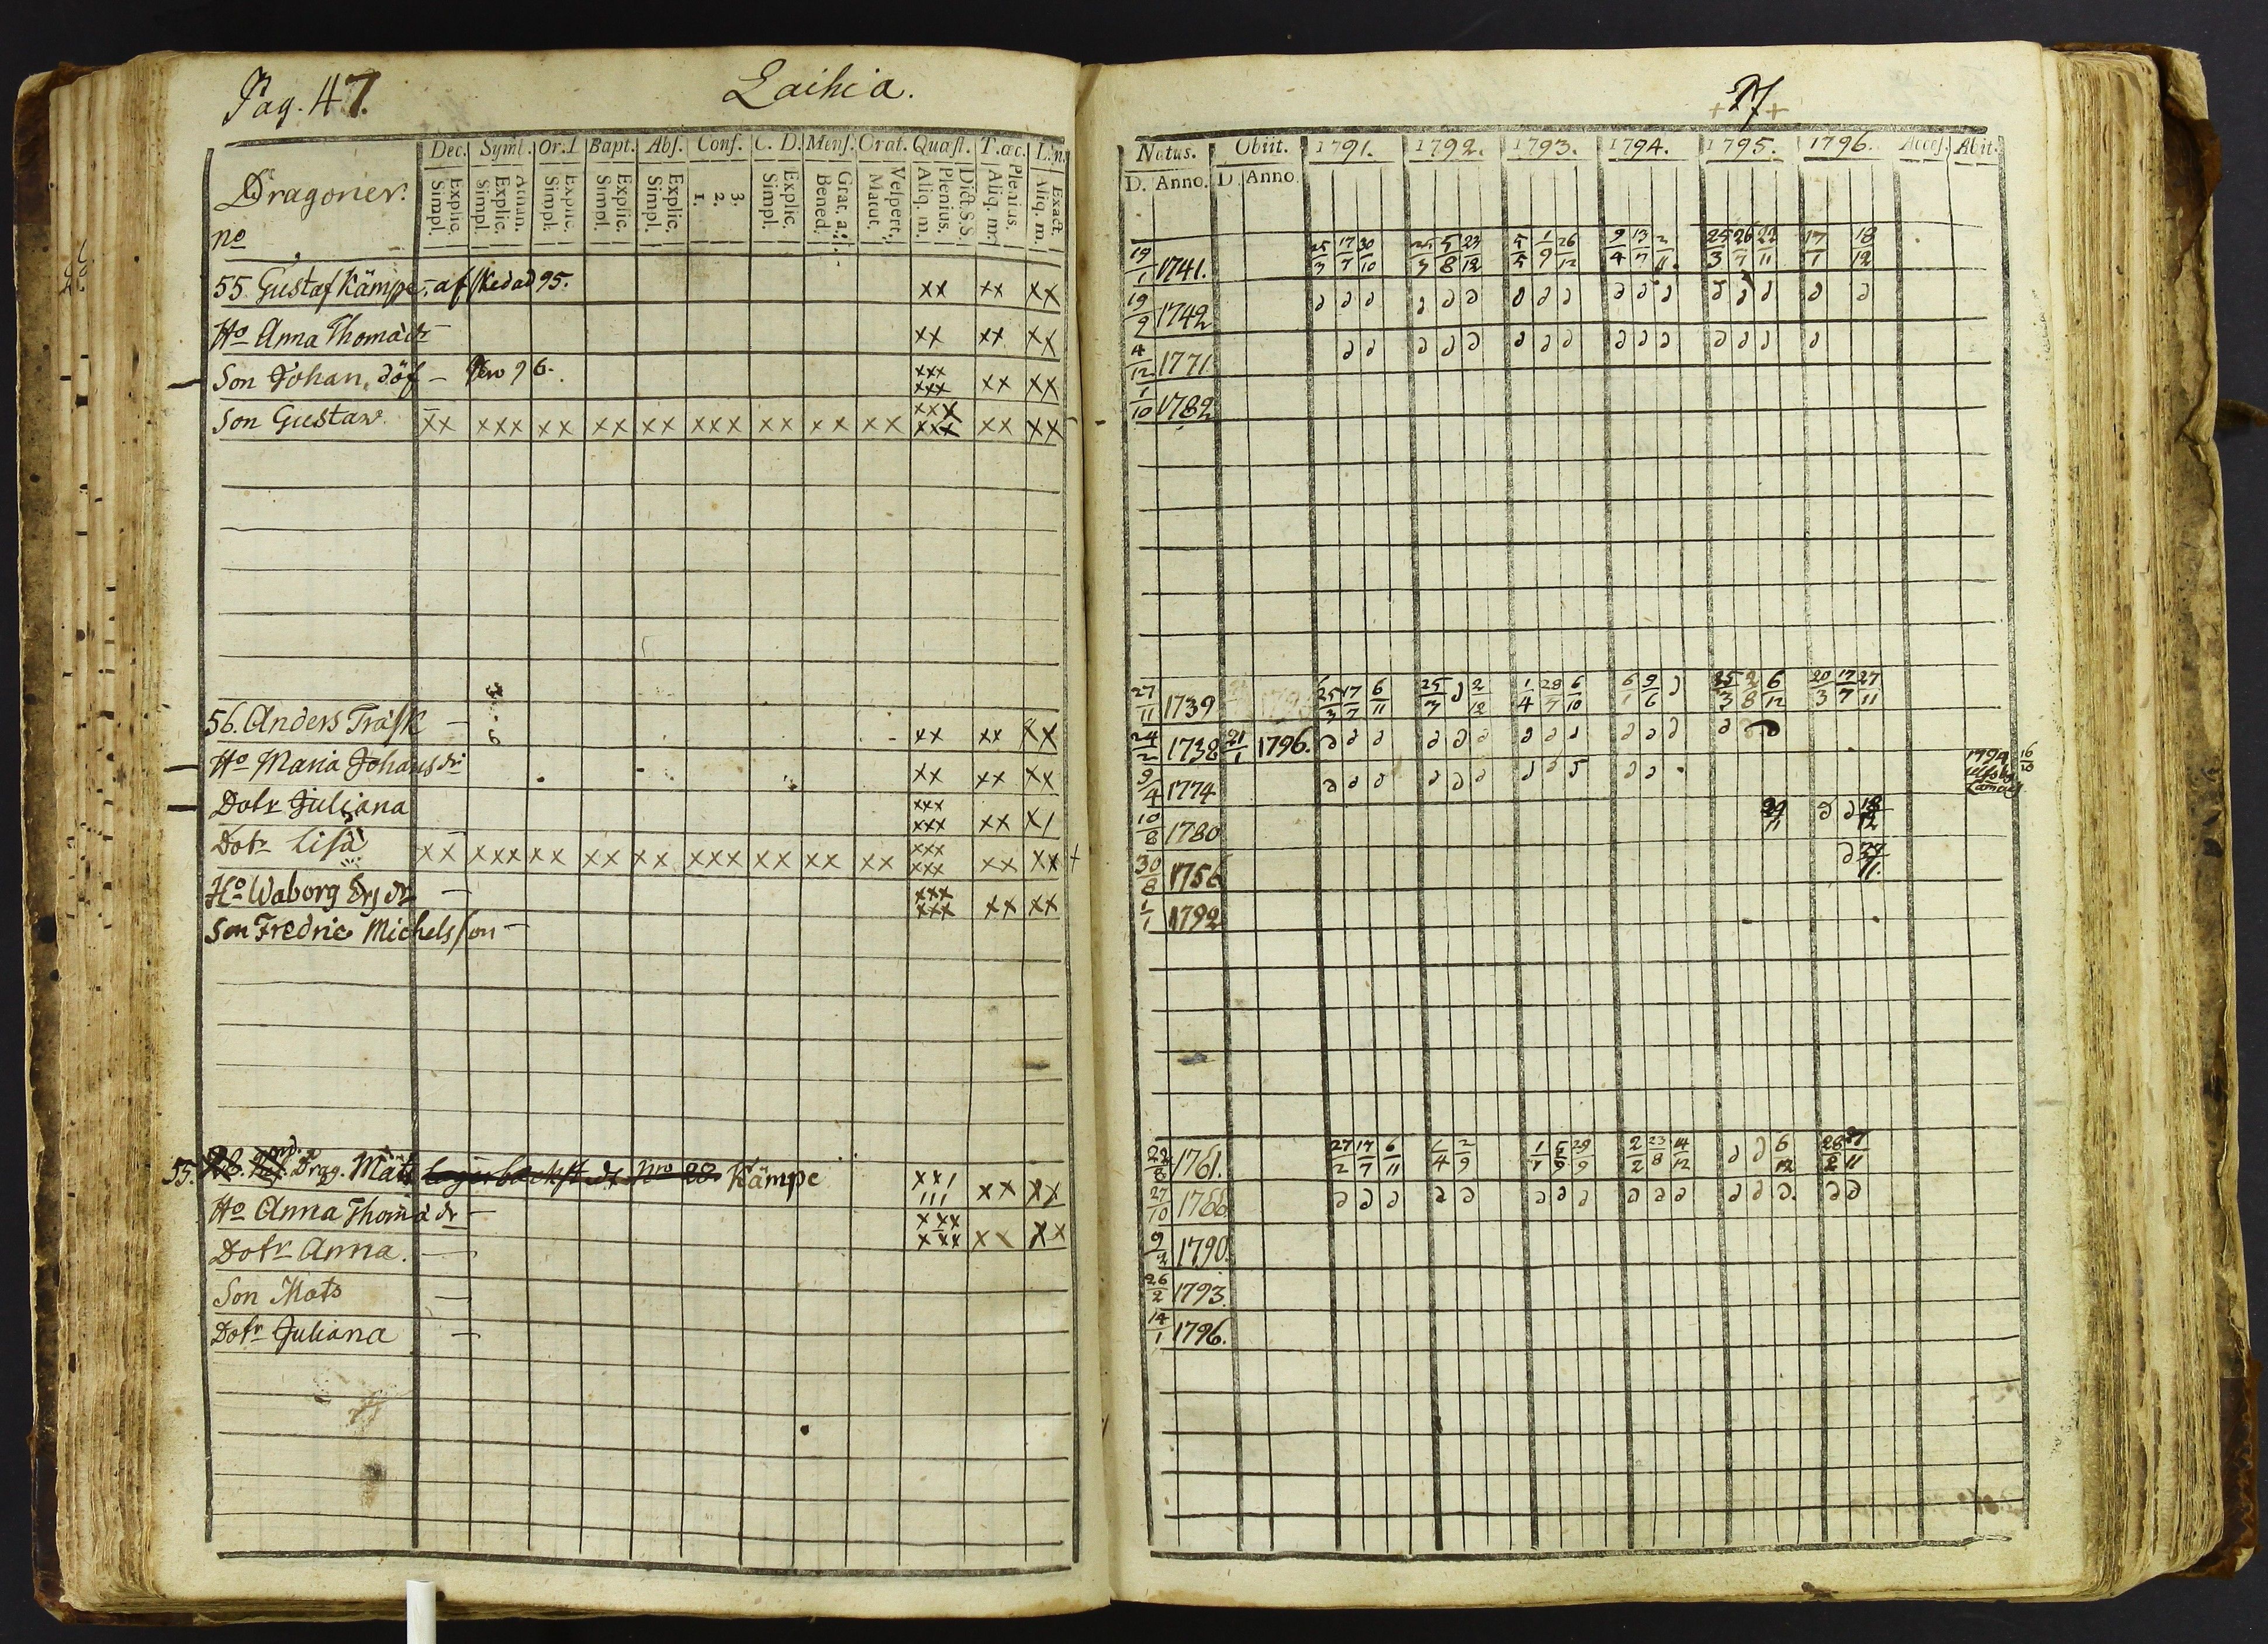 Pag. 47.
Laihia.
Dragoner.
Dec. Symb. Or. D Bapt. Abs. Conf. C. D. Mens. Orat. Quæst. T. œc. Lin.
Explic. Simpl. Athan. Explic. Simpl. Explic. Simpl. Explic. Simpl. Explic. Simpl. 3. 2. 1. Explic. Simpl. Grat. a. Bened. Vespert. Matut. Dict. S.S. Plenius. Aliq. m. Plenius. Aliq. m. Exact. Aliq. m.
no
55. Gustaf Kämpe, - afskedad 95. xx xx xx
Ho Anna Thomädr - xx xx xx
Son Johan, döf - 96. xxx xxx xx xx
Son Gustav - xx xxx xx xx xx xxx xx xx xx xxx xxx xx xx
56. Anders Träsk - xx xx xx
Ho Maria Johansdr xx xx xx
Dotr Juliana xxx xxx xx x/
Dotr Lisa - xx xxx xx xx xx xxx xx xx xx xxx xxx xx xx +
Ho Waborg Ersdr - xxx xxx xx xx
Son Fredric Michelsson -
55. Drag. Mats Kämpe xx/ /// xx xx
Ho Anna Thomädr - xxx xxx xx xx
Dotr Anna. -
Son Mats -
Dotr Juliana -
Natus. Obiit. 1791. 1792. 1793. 1794. 1795. 1796. Acces. Abit.
D. Anno. D. Anno.
19/1 1741. 25/3 17/7 30/10 25/3 5/8 23/12 1/9 26/12 9/4 13/7 25/3 26/7 22/11 17/1 18/12
19/9 1742 ∂ ∂ ∂ ∂ ∂ ∂ ∂ ∂ ∂ ∂ ∂ ∂ ∂ ∂ ∂ ∂ ∂
4/12 1771 ∂ ∂ ∂ ∂ ∂ ∂ ∂ ∂ ∂ ∂ ∂ ∂ ∂ ∂ ∂
1/10 1782
27/11 1739 25/3 17/7 6/11 25/3 ∂ 2/12 1/4 28/7 6/10 6/1 9/6 ∂ 25/3 2/8 6/12 20/3 17/7 27/11
24/2 1738 21/1 1796. ∂ ∂ ∂ ∂ ∂ ∂ ∂ ∂ ∂ ∂ ∂ ∂ ∂ ∂ ∂
9/4 1774 ∂ ∂ ∂ ∂ ∂ ∂ ∂ ∂ ∂ ∂ 1794 16/10
10/8 1780 29/11 ∂ ∂ 18/12
30/8 1756 ∂ 27/11.
1/1 1792
22/8 1761. 27/2 17/7 6/11 2/9 29/9 2/2 23/8 14/12 ∂ ∂ 6/12 28/2 27/11
27/10 1766 ∂ ∂ ∂ ∂ ∂ ∂ ∂ ∂ ∂ ∂ ∂ ∂ ∂ ∂. ∂ ∂
9/2 1790.
26/2 1793.
14/1 1796.